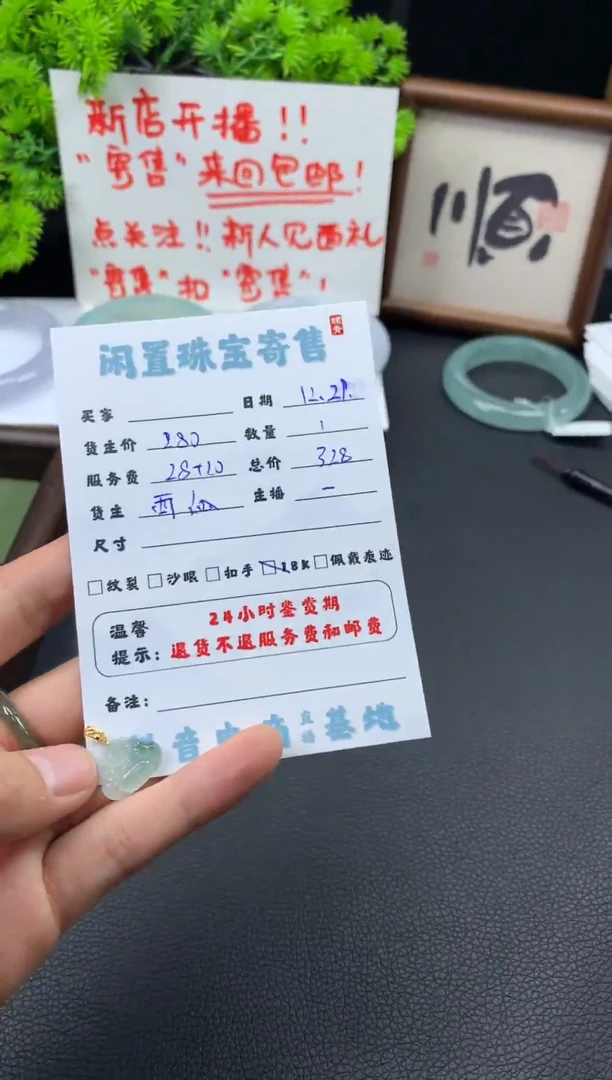 新店开播!!
"寄售"来回包邮!
点关注!!新人见面礼
"寄售"扣"寄售"!
順
闲置珠宝寄售
买家 日期 12.21.
货主价 280 数量 1
服务费 28+20 总价 328
货主 西 主播 一
尺寸
纹裂 沙眼 扣手 18k 佩戴痕迹
温馨提示: 24小时鉴赏期
退货不退服务费和邮费
备注:
抖音电商直播基地